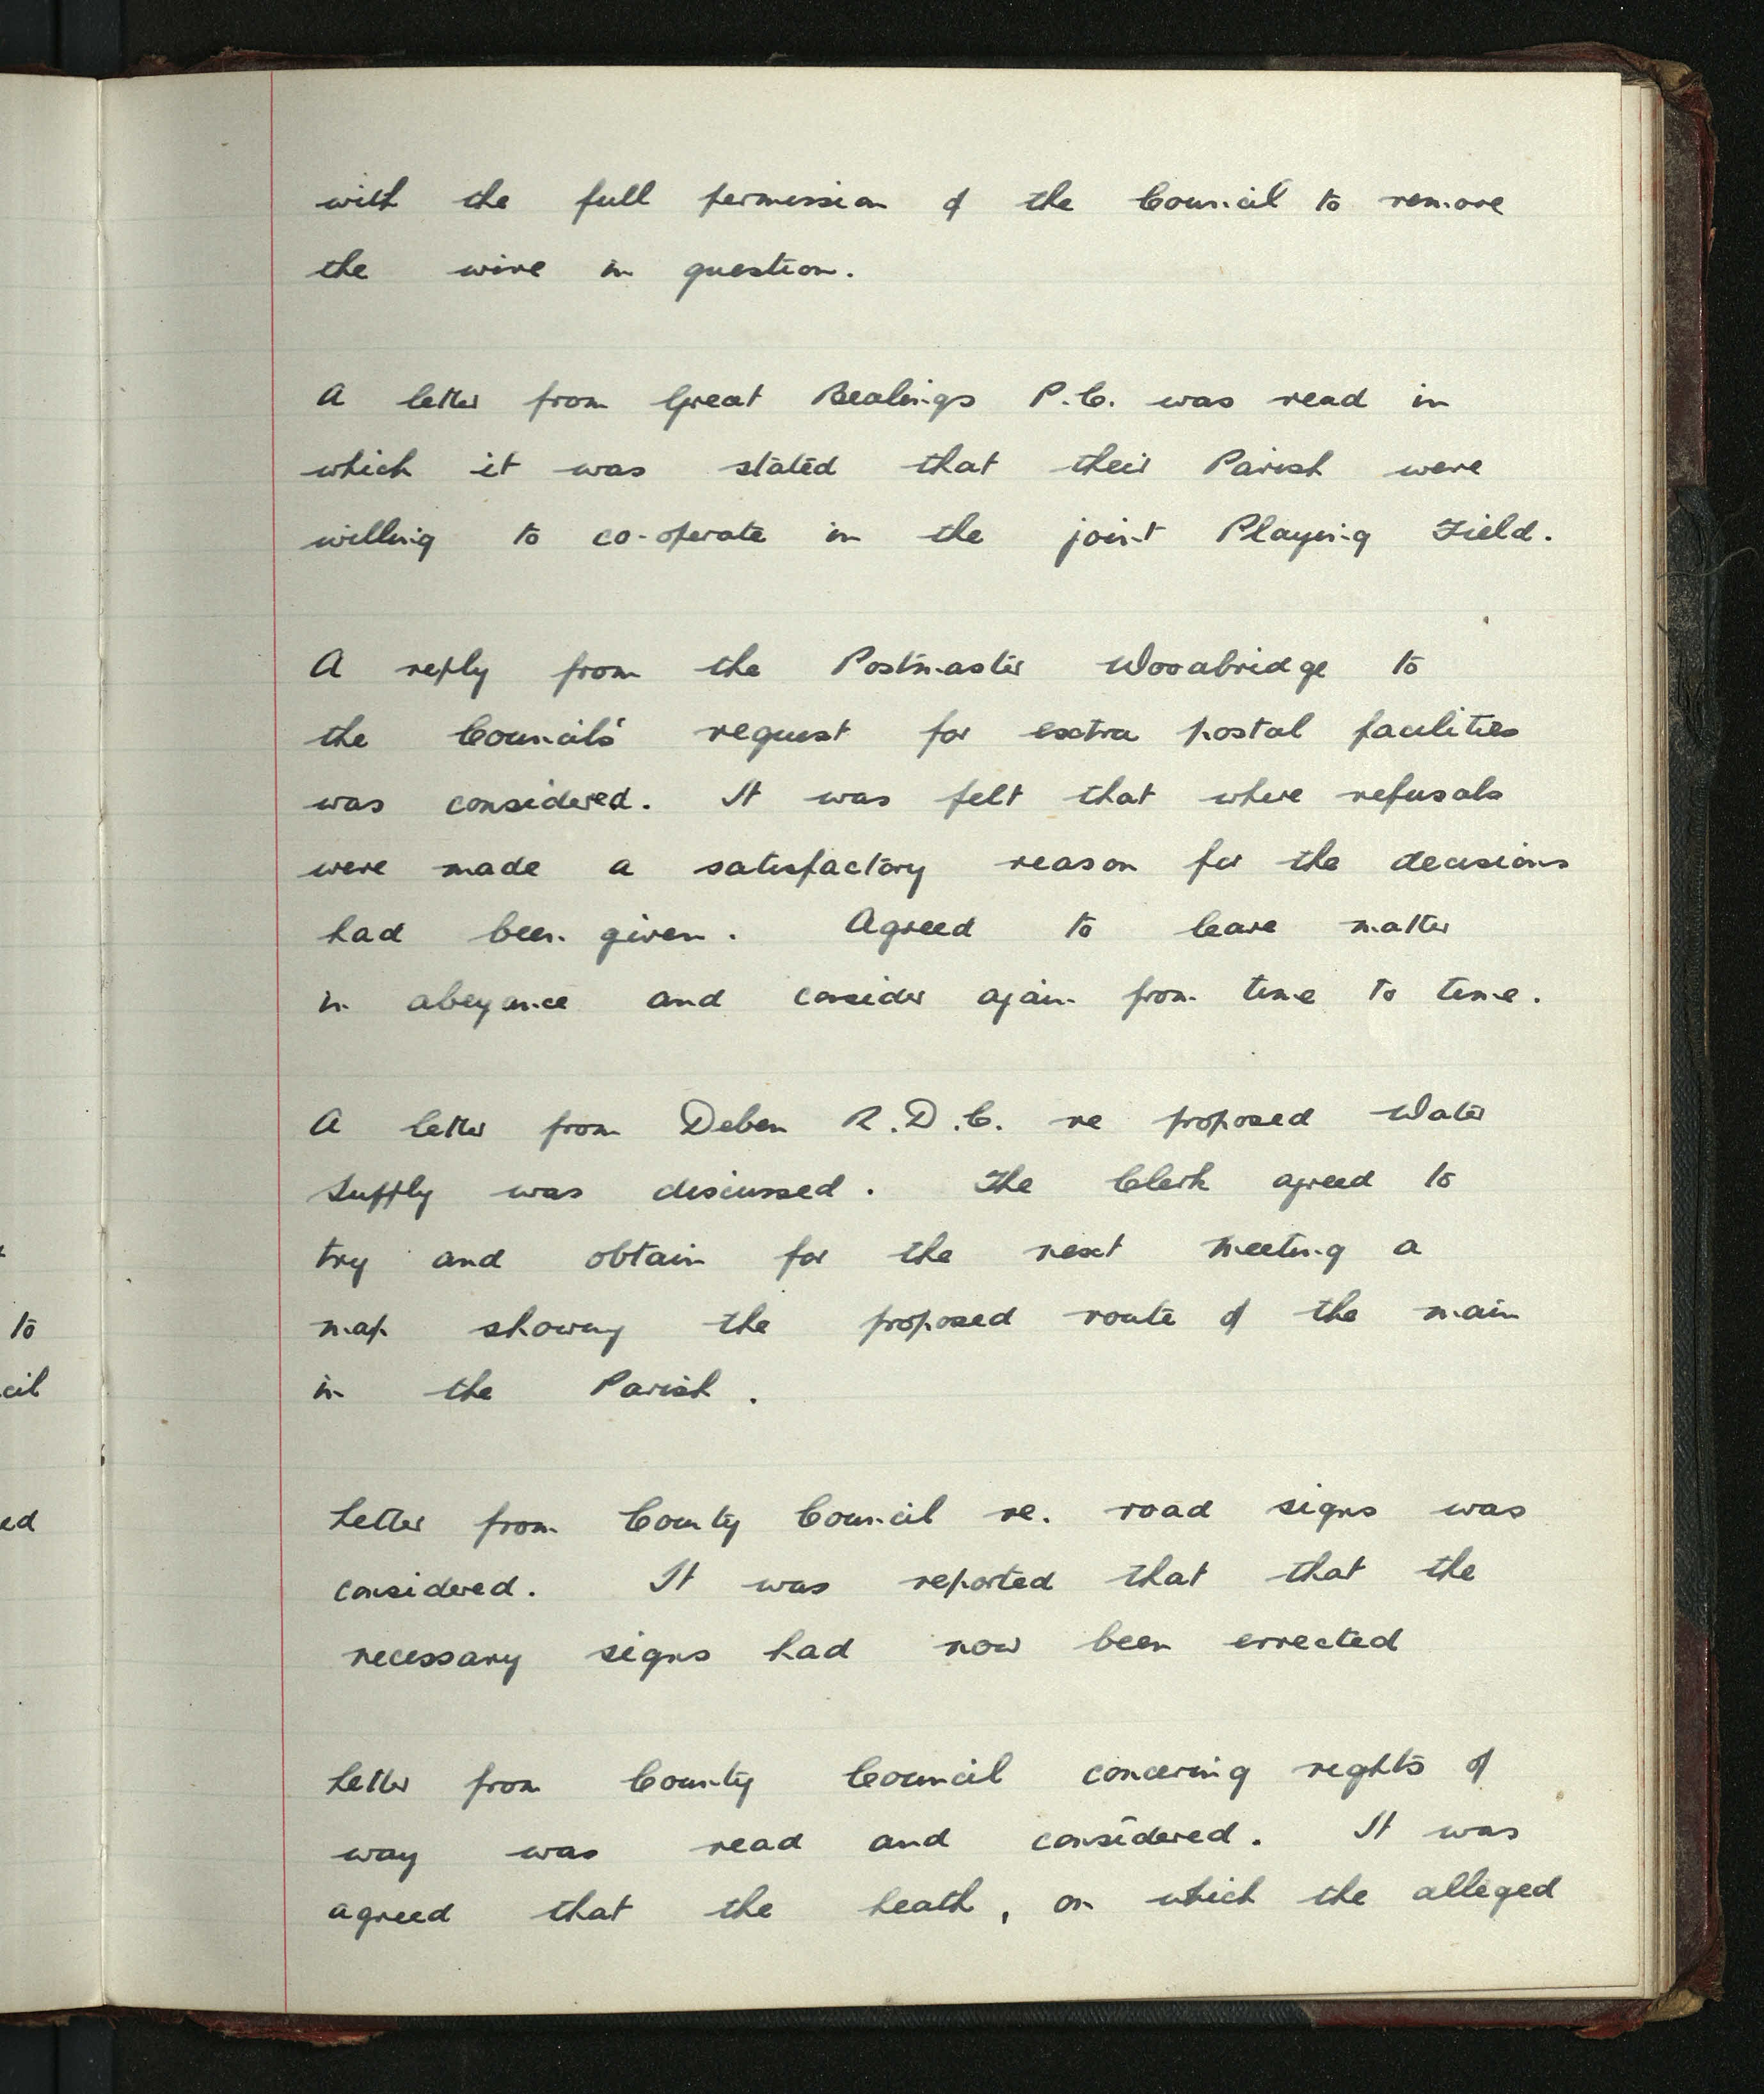 with the full permission of the Council to remove
the wire in question.
A letter from Great Bealings P.C. was read in
which it was stated that their Parish were
willing to co-operate in the joint Playing Field.
A reply from the Postmaster Woodbridge to
the Council's request for extra postal facilities
was considered. It was felt that where refusals
were made a satisfactory reason for the decisions
had been given. Agreed to leave matter
in abeyance and consider again from time to time.
A letter from Deben R.D.C. re proposed Water
Supply was discussed. The Clerk agreed to
try and obtain for the next meeting a
map showing the proposed route of the main
in the Parish.
Letter from County Council re. road signs was
considered. It was reported that that the
necessary signs had now been errected
Letter from County Council concering rights of
way was read and considered. It was
agreed that the heath, on which the alleged
to
cil
ed